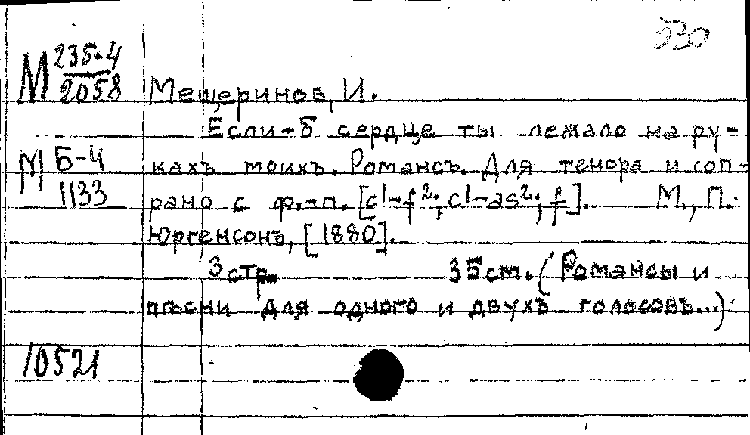 530
М 235-4
2058
Мещеринов, И.
Если-б сердце ты лежало на ру-
М Б-4
1133
кахъ моихъ. Романсъ. Для тенора и соп-
рано с ф.-п. [c¹-f²; c¹-as²; f]. М., П.
Юргенсонъ, [1880].
3 стр. 35 см. (Романсы и
пѣсни для одного и двухъ голосовъ...)
10521